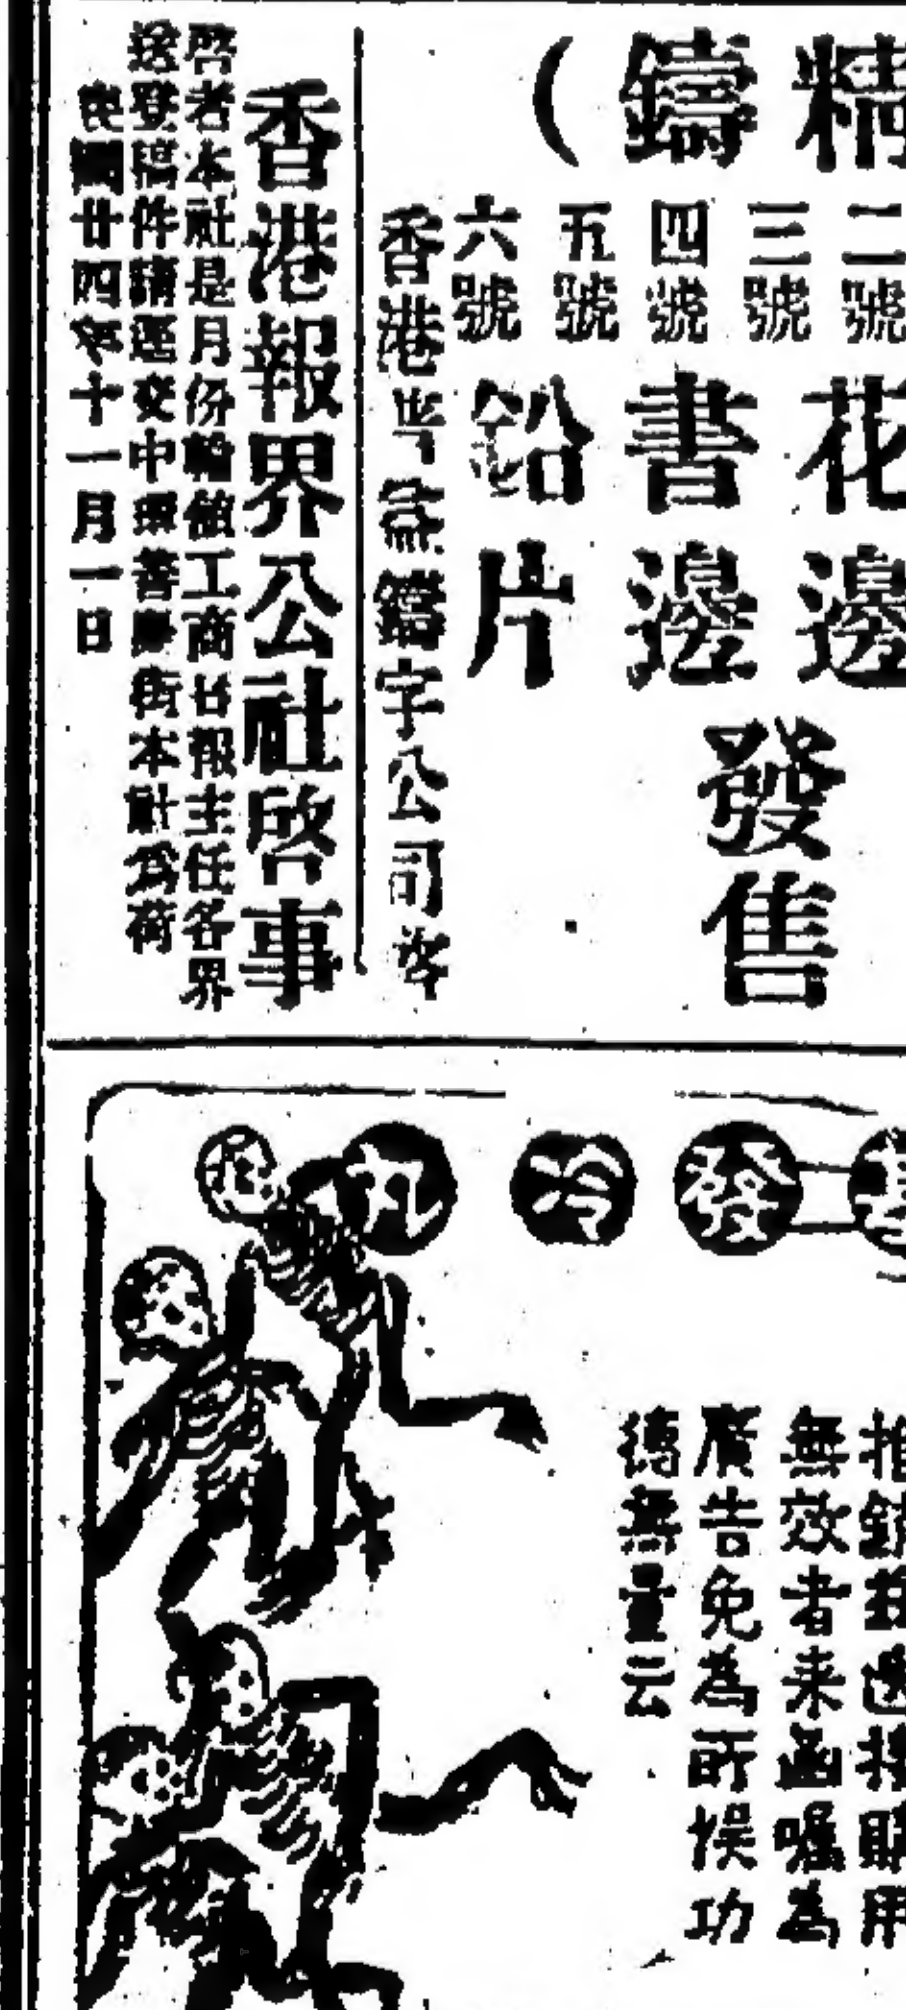 精鑄（
二號
三號
四號
五號
六號
花邊
書邊
鉛片
發售
香港
鑄字公司啓
香港報界公社啓事
啓者本社是月份輪值工商日報主任各界
送登稿件請逕交中環善慶街本社為荷
民國廿四年十一月一日
發冷丸
無效者来函嘱為
廣告免為所悮功
德無量云